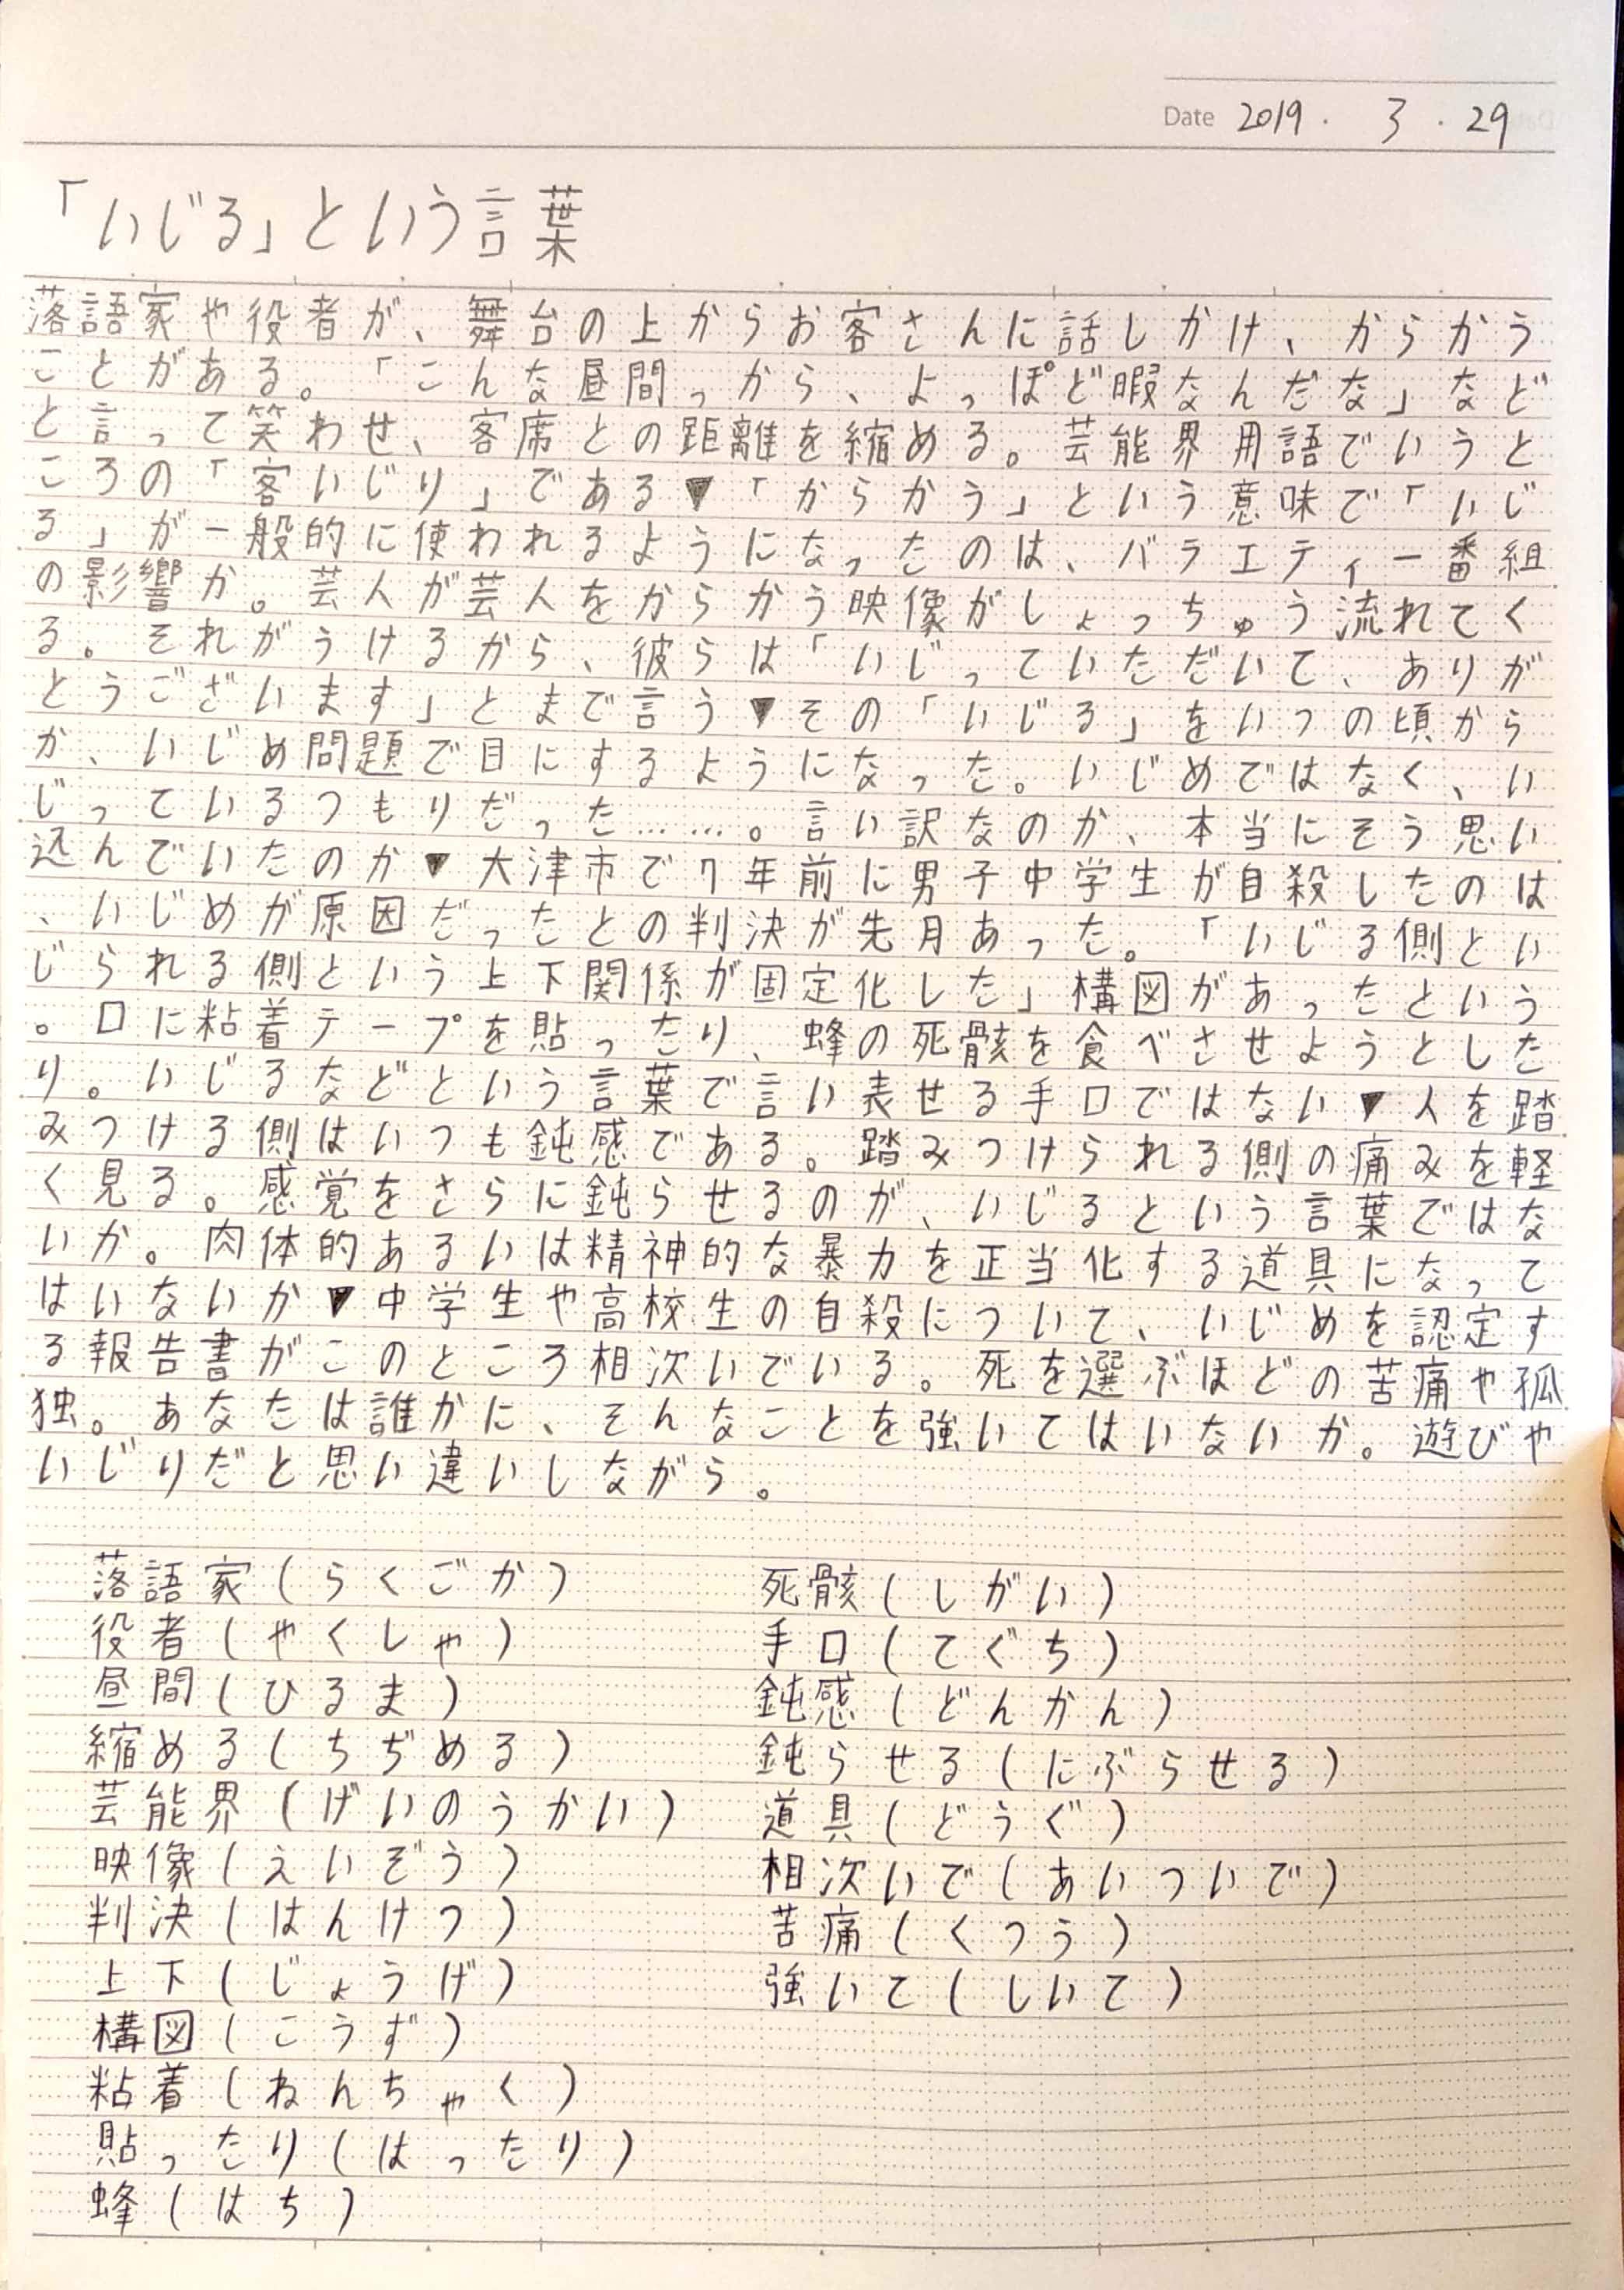 Date 2019 · 3 · 29
「いじる」という言葉
落語家や役者が、舞台の上からお客さんに話しかけ、からかう
ことがある。「こんな昼間っから、よっぽど暇なんだな」など
と言って笑わせ、客席との距離を縮める。芸能界用語でいうと
ころの「客いじり」である▼「からかう」という意味で「いじ
る」が一般的に使われるようになったのは、バラエティー番組
の影響か。芸人が芸人をからかう映像がしょっちゅう流れてく
る。それがうけるから、彼らは「いじっていただいて、ありが
とうございます」とまで言う▼その「いじる」をいつの頃から
か、いじめ問題で目にするようになった。いじめではなく、い
じっているつもりだった……。言い訳なのか、本当にそう思い
込んでいたのか▼大津市で7年前に男子中学生が自殺したのは
、いじめが原因だったとの判決が先月あった。「いじる側とい
じられる側という上下関係が固定化した」構図があったという
。口に粘着テープを貼ったり、蜂の死骸を食べさせようとした
り。いじるなどという言葉で言い表せる手口ではない▼人を踏
みつける側はいつも鈍感である。踏みつけられる側の痛みを軽
く見る。感覚をさらに鈍らせるのが、いじるという言葉ではな
いか。肉体的あるいは精神的な暴力を正当化する道具になって
はいないか▼中学生や高校生の自殺について、いじめを認定す
る報告書がこのところ相次いでいる。死を選ぶほどの苦痛や孤
独。あなたは誰かに、そんなことを強いてはいないか。遊びや
いじりだと思い違いしながら。
落語家(らくごか)
役者(やくしゃ)
昼間(ひるま)
縮める(ちぢめる)
芸能界(げいのうかい)
映像(えいぞう)
判決(はんけつ)
上下(じょうげ)
構図(こうず)
粘着(ねんちゃく)
貼ったり(はったり)
蜂(はち)
死骸(しがい)
手口(てぐち)
鈍感(どんかん)
鈍らせる(にぶらせる)
道具(どうぐ)
相次いで(あいついで)
苦痛(くつう)
強いて(しいて)